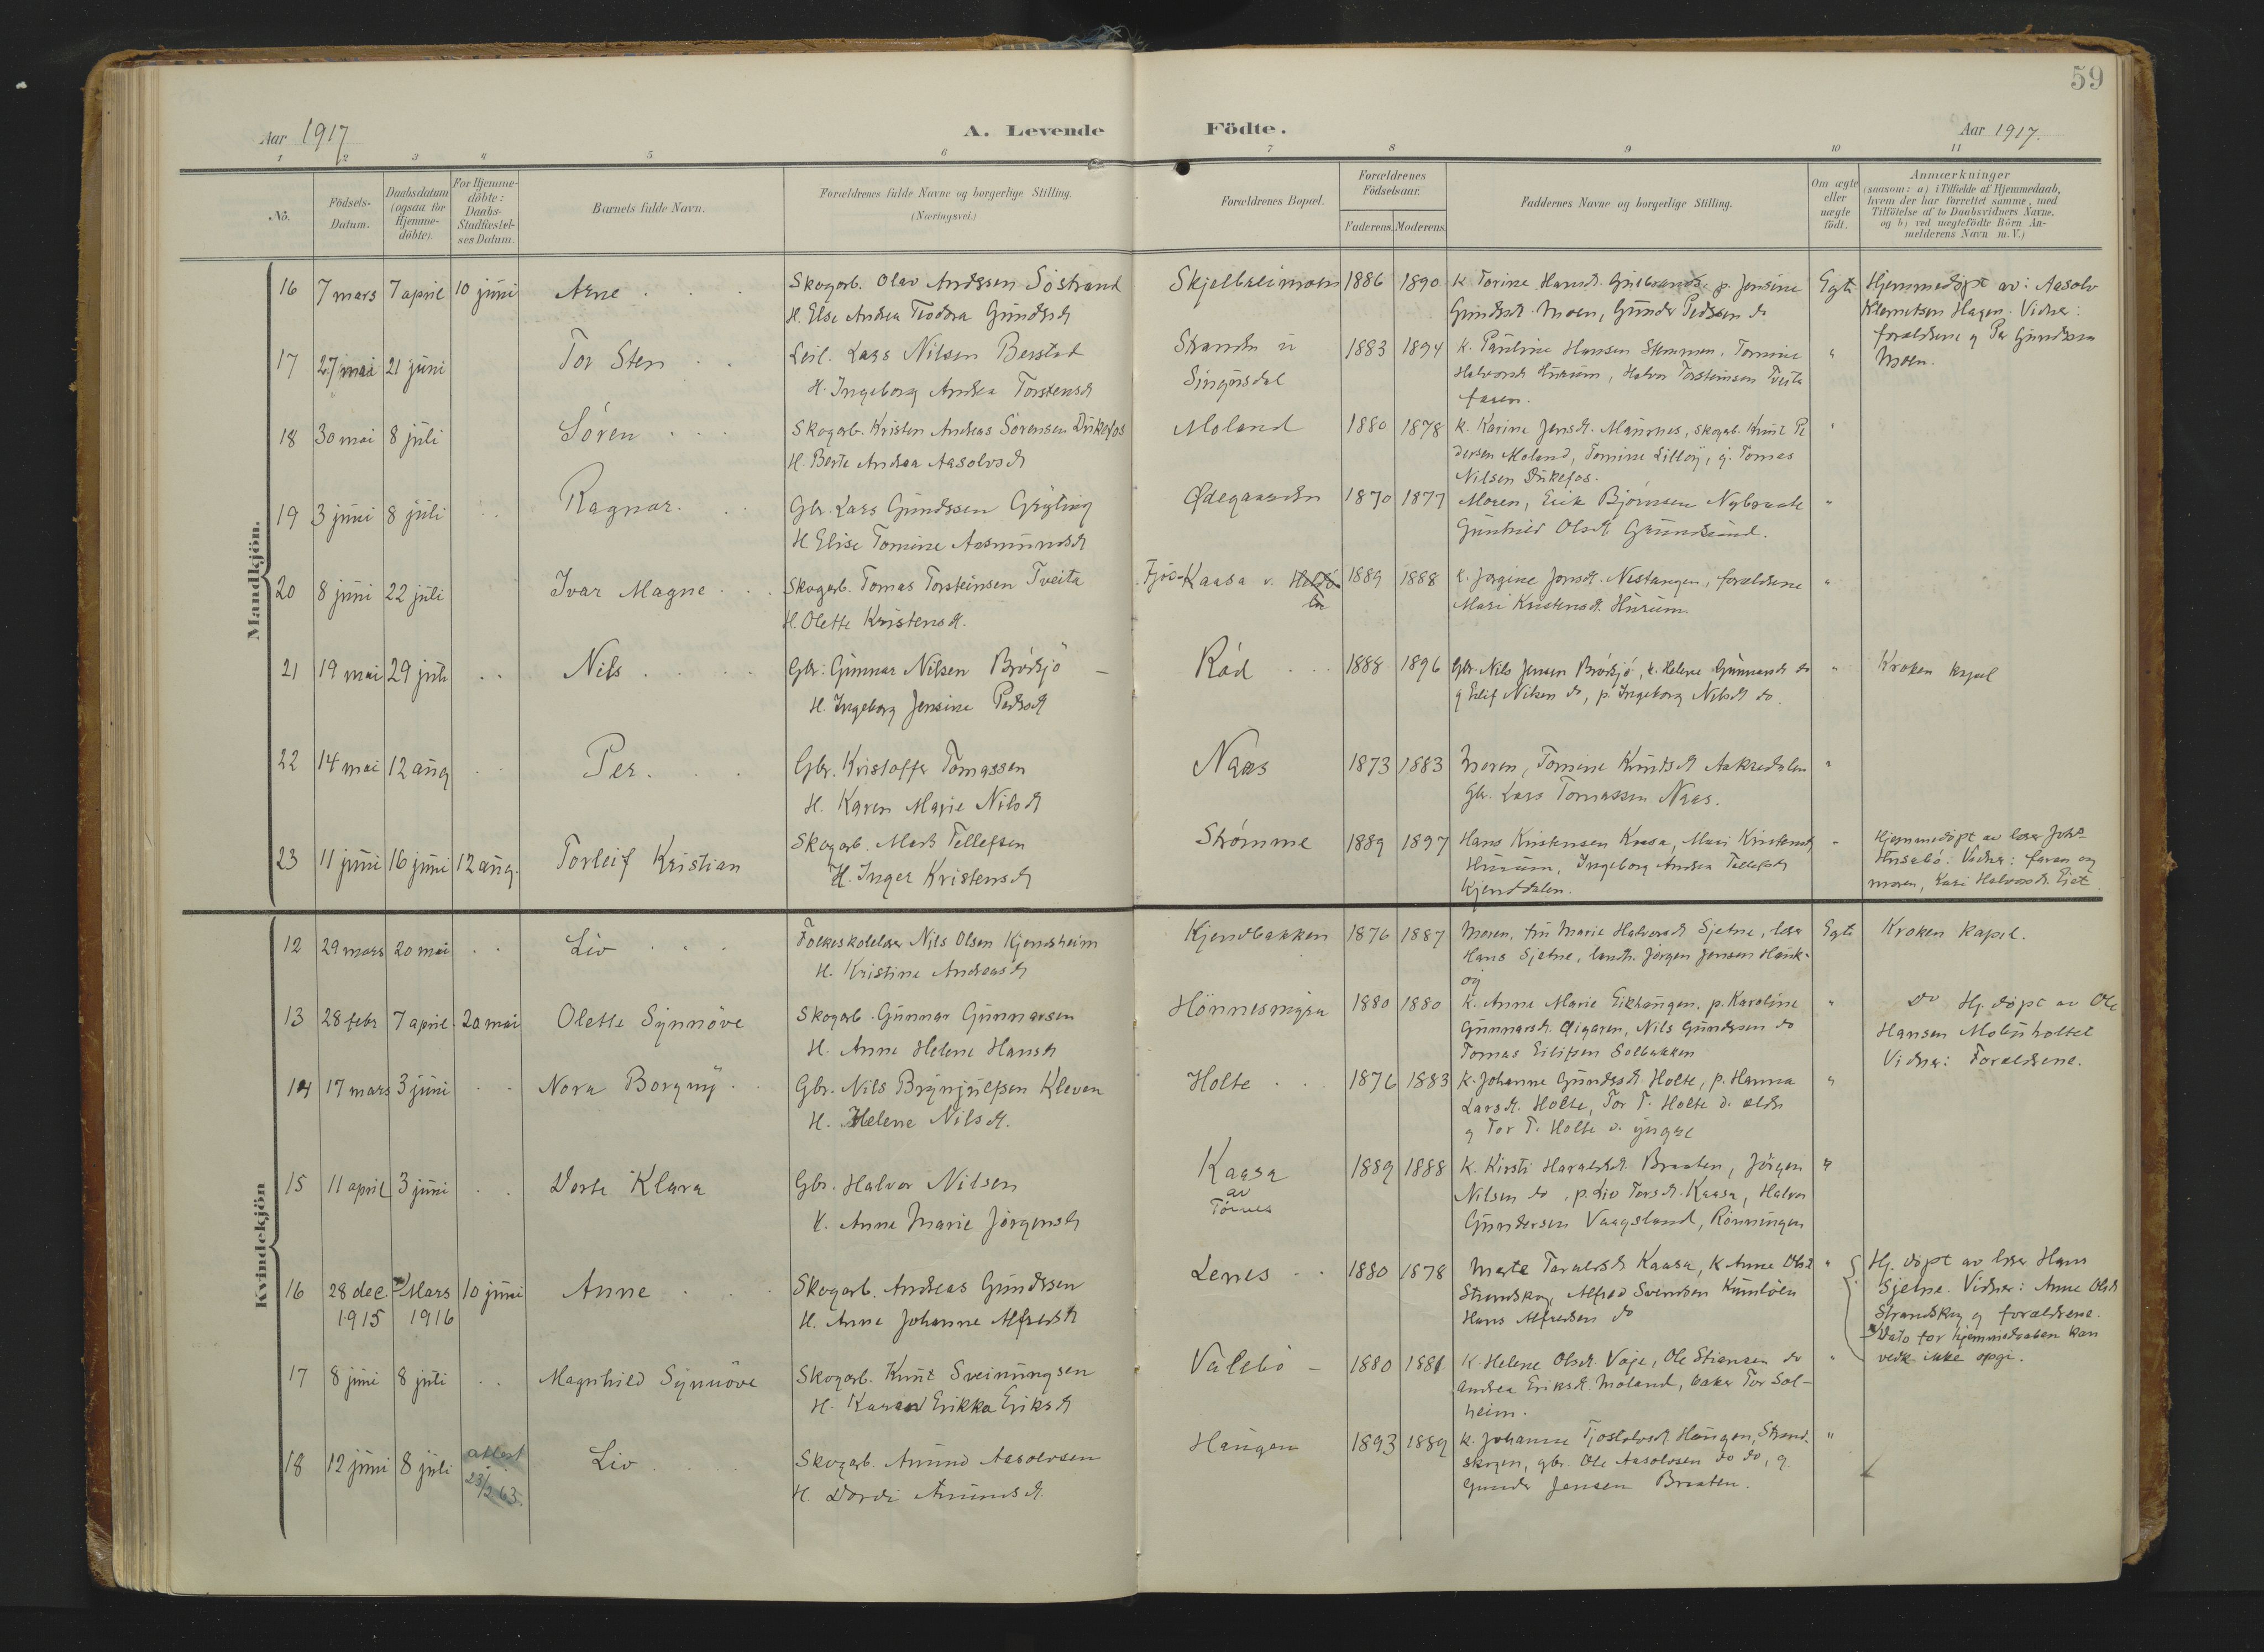 59
Aar 1917
A. Levende
Födte.
Aar 1917.
1 2 3 4 5 6 7 8 9 10 11
No.
Födsels-Datum.
Daabsdatum (ogsaa for Hjemme-döbte).
For Hjemme-döbte: Daabs-Stadfæstel-ses Datum.
Barnets fulde Navn.
Forældrenes fulde Navne og borgerlige Stilling.
(Næringsvei.)
Forældrenes Bopæl.
Forældrenes Födselsaar.
Faderens. Moderens.
Faddernes Navne og borgerlige Stilling.
Om ægte eller uægte födt.
Anmærkninger
(saasom: a) i Tilfælde af Hjemmedaab,
hvem der har forrettet samme, med
Tilföielse af to Daabsvidners Navne.
og b) ved uægtefödte Börn An-
melderens Navn m. V.)
Mandkjön.
16 7 mars 7 april 10 juni Arne Skogarb. Olav Anderssen Söstrand Skjelbreimoen 1886 1890 K. Torine Hansd. p. Jensine Egte Hjemmedöpt av: Aasolv
H. Else Andrea Teodora Gundersd Gundersd. Moen, Gunder Pedersen do Klemetsen Hagen. Vidner:
forældrene og Per Gundersen
Moen.
17 27 mai 21 juni Tor Sten Leil. Lars Nilsen Berstad Stranden i 1883 1894 K. Pauline Hansen Stemmen, Tomine "
H. Ingeborg Andrea Torstensd Singusdal Halvorsd Hurum, Halvor Torsteinsen Tveita
faren.
18 30 mai 8 juli Sören Skogarb. Kristen Andreas Sörensen Dukefos Moland 1880 1878 K. Karine Jensd. Maurnes, skogarb. Knut Pe "
H. Berte Andrea Aasolvsd dersen Moland, Tomine Lilloy, g. Tomas
Nilsen Dukefos.
19 3 juni 8 juli Ragnar. Gbr. Lars Gunderssen Gryting Ødegaarden 1870 1877 Moren, Erik Björnsen Nybraate "
H Elise Tomine Aasmundsd Gunhild Olsd. Grundsund.
20 8 juni 22 juli Ivar Magne Skogarb. Tomas Torsteinsen Tveita Fjös-Kaasa v. 1889 1888 K. Jorgine Jonsd. Nestangen, forældrene "
H. Olette Kristensd. Mari Kristensd. Hurum.
21 19 mai 29 juli Nils Gbr. Gunnar Nilsen Brödsjö Råd 1888 1896 Gbr. Nils Jensen Brödsjö, k. Helene Gunnarsd do " Kroken kapel
H. Ingeborg Jensine Pedersd g Eilif Nilsen do, p. Ingeborg Nilsd do.
22 14 mai 12 aug Per. Gbr. Kristoffer Tomassen Naas 1873 1883 Moren, Tomine Knutsd Aakredalen "
H. Karen Marie Nilsd Gbr. Lars Tomassen Naas.
23 11 juni 16 juni 12 aug. Torleif Kristian Skogarb. Mads Tellefsen Strømme 1889 1897 Hans Kristensen Kaasa, Mari Kristensd " Hjemmedöpt av lærer Johs
H. Inger Kristensd Hurum, Ingeborg Andrea Tellefsd Husebö. Vidner: faren og
Kjenddalen. moren, Kari Halvorsd.
Kvindekjön
12 29 mars 20 mai Liv Folkeskolelærer Nils Olsen Kjendsheim Kjendbakken 1876 1887 Moren, fru Marie Halvorsd Sjetne, lærer Egte Kroken kapel.
H. Kristine Andreasd Hans Sjetne, landh. Jörgen Jensen Hauk-
öy
13 28 febr 7 april 20 mai Olette Synnöve Skogarb. Gunnar Gunnarsen Hönnesmyra 1880 1880 K. Anne Marie Eikhaugen, p. Karoline " Do Hj. döpt av Ole
H. Anne Helene Hansd Gunnarsd. Öigaren, Nils Gunderssen do Hansen Molunholtet
Tomas Eilifsen Solbakken Vidner: Forældrene.
14 17 mars 3 juni Nora Borgny Gbr. Nils Brynjulfsen Kleven Holte 1876 1883 K. Johanne Gundersd. Holte, p. Hanna "
H. Helene Nilsd. Larsd. Holte, Tor T. Holte d. eldre
g Tor T. Holte d. yngre
15 11 april 3 juni Dorte Klara Gbr. Halvor Nilsen Kaasa 1889 1888 K. Kirsti Haraldsd. Braaten, Jörgen "
H. Anne Marie Jörgensd av Nilsen do, p. Liv Torsd. Kaasa, Halvor
Törnes Gundersen Vaagsland, Rönningen
16 28 dec. Mars 10 juni Anne Skogarb. Andreas Gundersen Lenes 1880 1878 Marte Taraldsd. Kaasa, K. Anne Olsd " Hj. döpt av lærer Hans
1915 1916 H. Anne Johanne Alfredsd Strandskog Alfred Svendsen Sjetne. Vidner: Anne Olsd
Hans Alfredsen do Strandskog g forældrene.
Dato for hjemmedaaben kan
vedk. ikke opgi.
17 8 juni 8 juli Magnhild Synnöve Skogarb. Knut Sveinungsen Valebö 1880 1881 K. Helene Olsd. Voje, Ole Stiansen do "
H. Karen Erikka Eriksd Andrea Eriksd. Moland, baker Tor Sol-
heim.
18 12 juni 8 juli attest 23/2 63. Liv Skogarb. Amund Aasolvsen Haugen 1893 1889 K. Johanne Tjostolvsd. Haugen, Strand- "
H. Dordi Amundsd. skogen, gbr. Ole Aasolvsen do do, g.
Gunder Jensen Braaten.